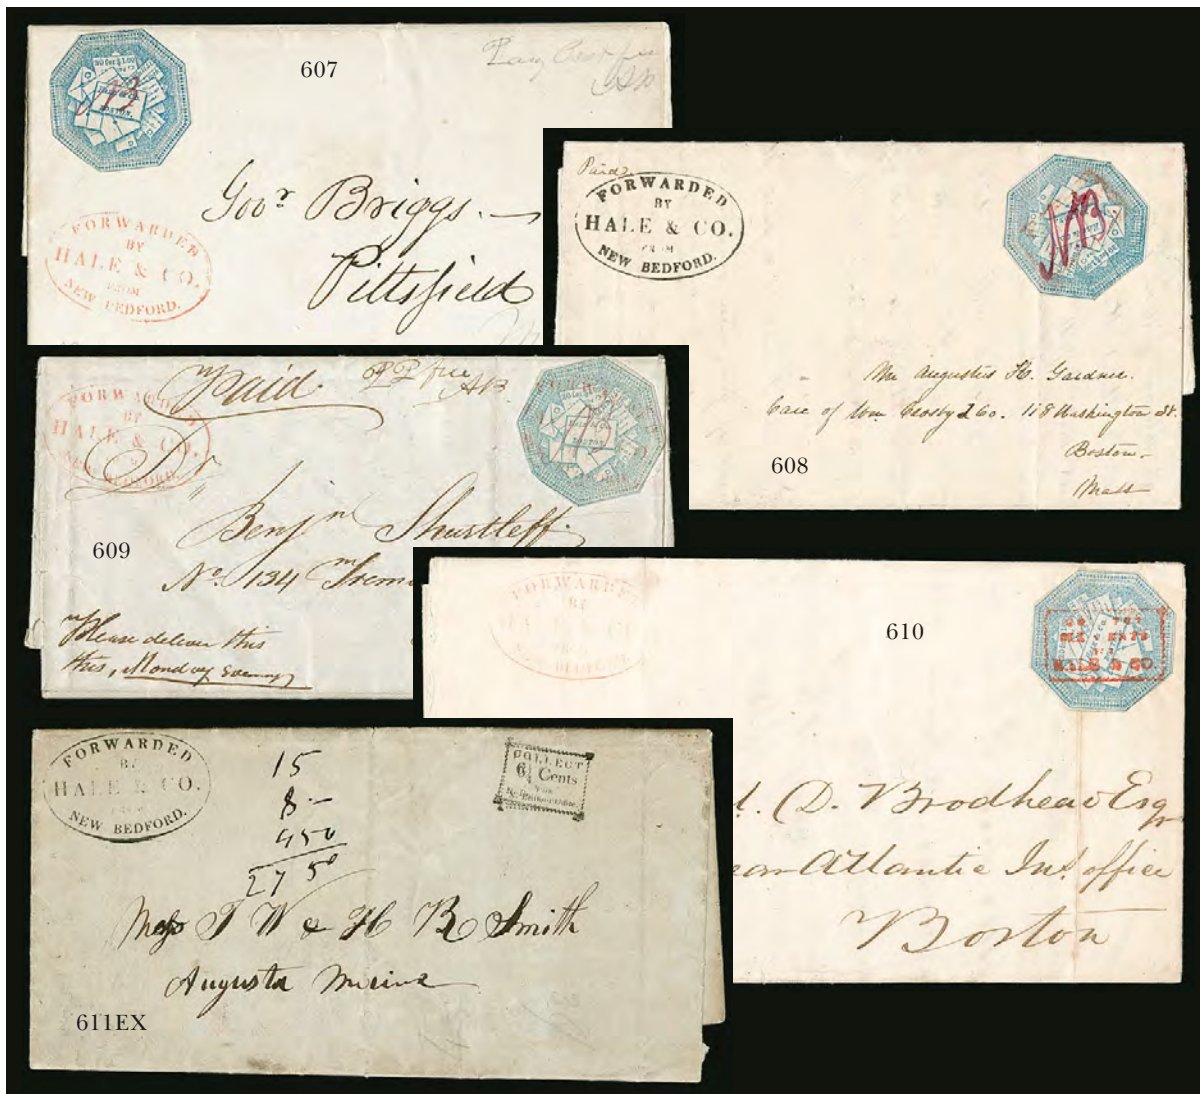 607
Gov.r Briggs.
Pittsfield
FORWARDED
BY
HALE & CO.
FROM
NEW BEDFORD.
HALE & CO.
BOSTON.
Paid
FORWARDED
BY
HALE & CO.
FROM
NEW BEDFORD.
Mr Augustus H. Gardner.
Care of Wm Crosby & Co. 118 Washington St.
Boston.
Mass
608
Paid
FORWARDED
BY
HALE & CO.
NEW BEDFORD.
Dr
Benjn Shurtleff.
609
No. 134
Please deliver this
this, Monday evening
FORWARDED
BY
HALE & CO.
FROM
NEW BEDFORD
610
HALE & CO.
D. Brodhead Esq
Atlantic Ins. office
Boston
FORWARDED
BY
HALE & CO.
FROM
NEW BEDFORD.
15
8.-
4 50
27 50
COLLECT
6¼ Cents
FOR
Messrs T W & H R Smith
Augusta Maine
611EX